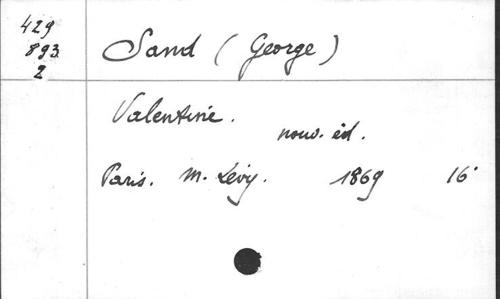 429
893
2
Sand (George)
Valentine.
nouv. éd.
Paris. M. Lévy. 1869 16°